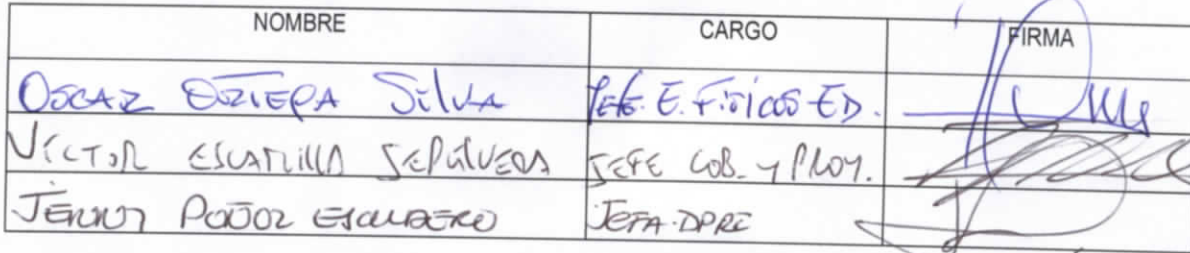 NOMBRE CARGO FIRMA
OSCAR Silva Jefe. E. Físicos-ED.
VÍCTOR ESCANILLA SEPÚLVEDA JEFE COB. y PROY.
JENNY ESCUDERO JEFA-DPRE